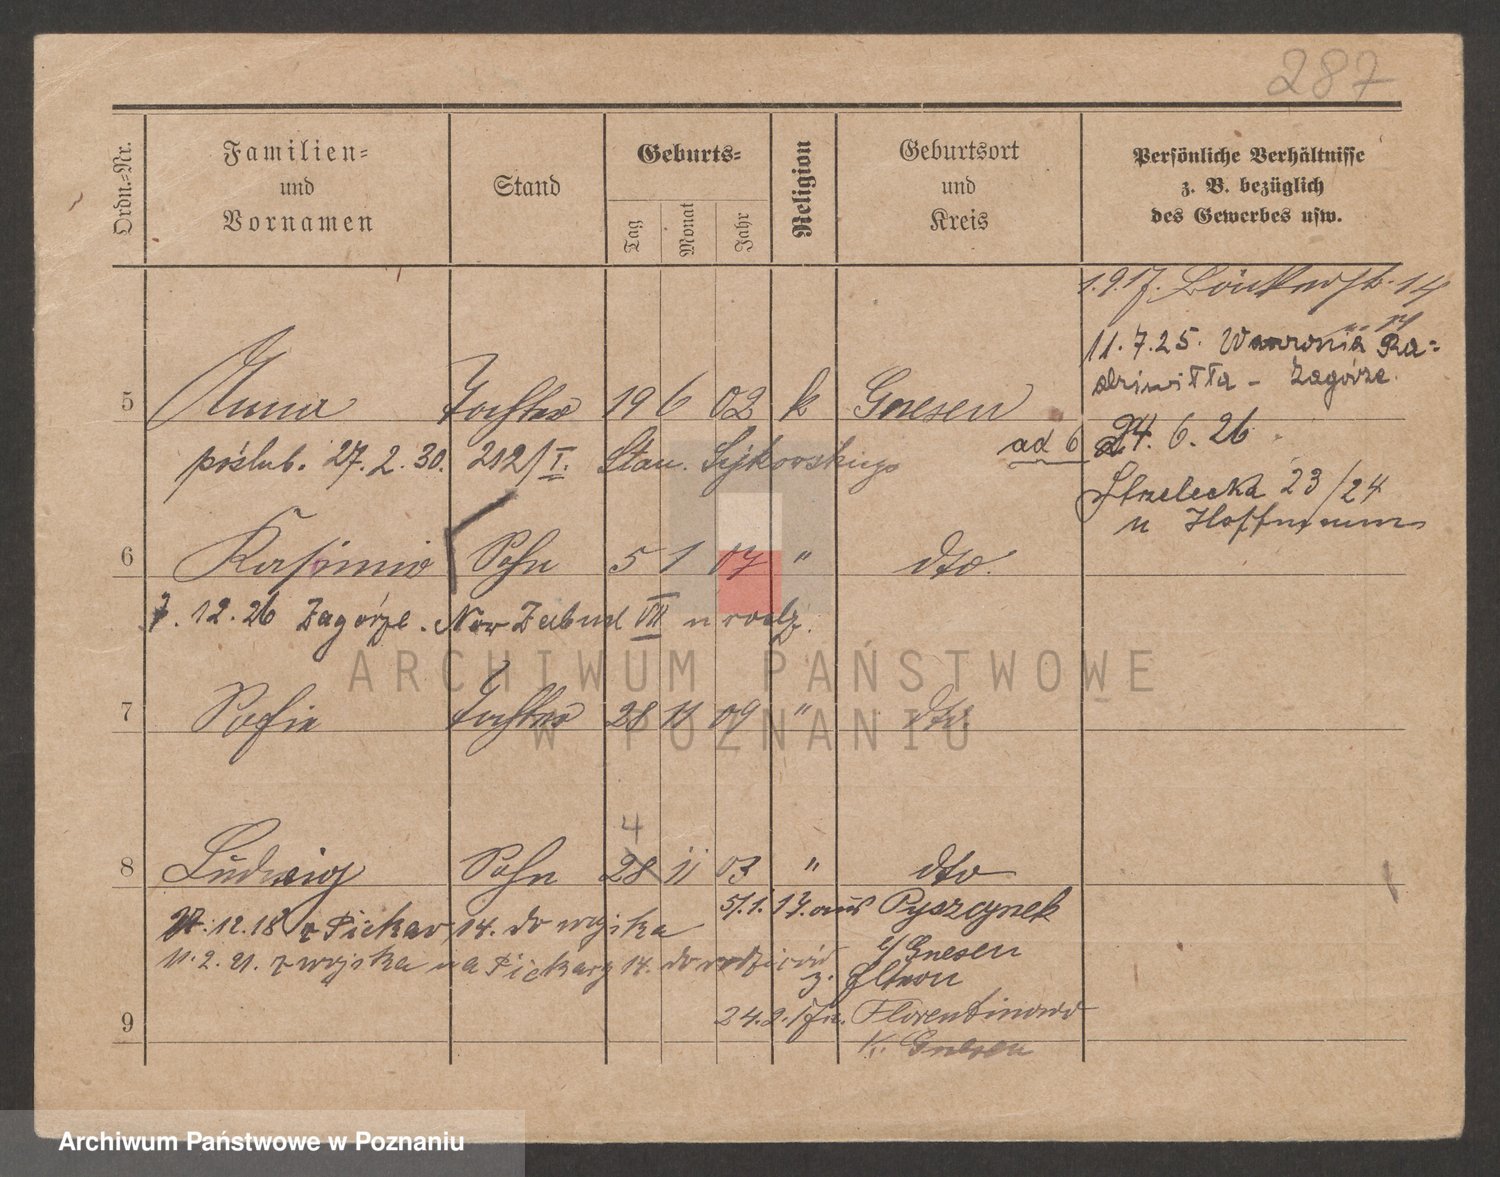 287
Ordn.-Nr.
Familien-
und
Vornamen
Stand
Geburts-
Tag
Monat
Jahr
Religion
Geburtsort
und
Kreis
Persönliche Verhältnisse
z. B. bezüglich
des Gewerbes usw.
1.9.17. 14
11.7.25. Ra-
Zagórze.
5 Anna Tochter 19 6 02 k Gnesen
poślub. 27.2.30. 212/I. Stan. Sykorskiego
ad 6 24.6.26
Strzelecka 23/24
u Hoffmann
6 Kasimir Sohn 5 1 07 " dto.
7.12.26 Zagórze. VII u rodz.
7 Sofie Tochter 28 11 09 " dto.
4
8 Ludwig Sohn 28 11 03 " dto
5/1.17. aus Pyszczynek
12.18 z Piekar, 14. do wojska
Gnesen
11.2.21. z wojska na Piekary 14. do rodziców
z. Eltern
9
24.2. Florentinowo
K. Gnesen
ARCHIWUM PAŃSTWOWE
W POZNANIU
Archiwum Państwowe w Poznaniu